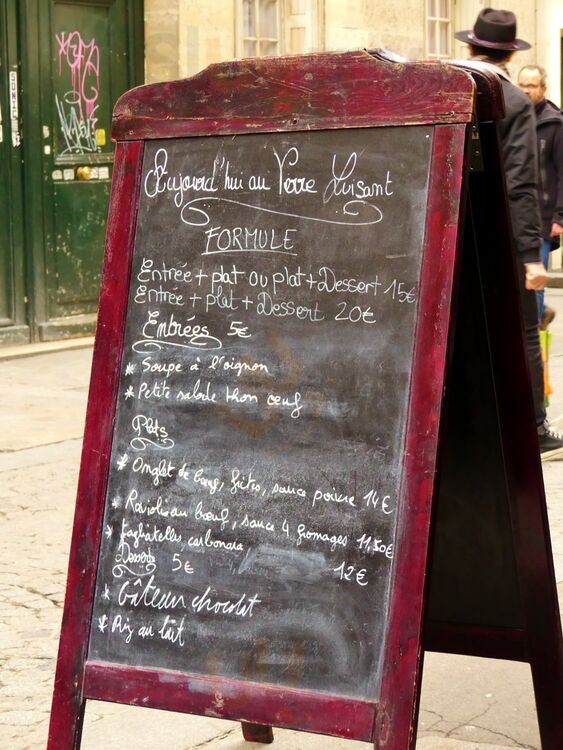 Aujourd'hui au Verre Luisant
FORMULE
Entrée + plat ou plat + Dessert 15€
Entrée + plat + Dessert 20€
Entrées 5€
* Soupe à l'oignon
* Petite salade thon oeuf
Plats
* Onglet de boeuf, frites, sauce poivre 14€
* Ravioli au boeuf, sauce 4 fromages 11,50€
* tagliatelles carbonara 12€
Desserts 5€
* Gâteau chocolat
* Riz au lait